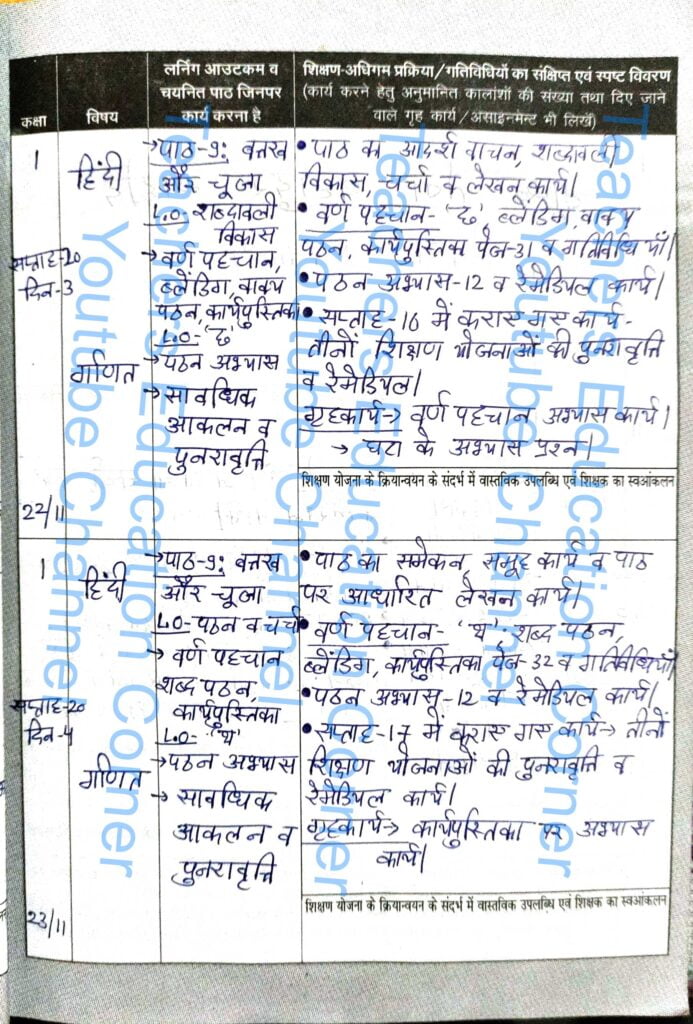 कक्षा
विषय
लर्निंग आउटकम व
चयनित पाठ जिनपर
कार्य करना है
शिक्षण-अधिगम प्रक्रिया/गतिविधियों का संक्षिप्त एवं स्पष्ट विवरण
(कार्य करने हेतु अनुमानित कालांशों की संख्या तथा दिए जाने
वाले गृह कार्य/असाइनमेन्ट भी लिखें)
1
हिंदी
सप्ताह-20
दिन-3
गणित
22/11
→पाठ-9: बत्तख
और चूजा
L.O- शब्दावली
विकास
→ वर्ण पहचान,
ब्लेंडिंग, वाक्य
पठन, कार्यपुस्तिका
L.O- 'छ'
→ पठन अभ्यास
→ सावधिक
आकलन व
पुनरावृत्ति
• पाठ का आदर्श वाचन, शब्दावली
विकास, चर्चा व लेखन कार्य।
• वर्ण पहचान- 'छ', ब्लेंडिंग, वाक्य
पठन, कार्यपुस्तिका पेज-31 व गतिविधियाँ।
• पठन अभ्यास-12 व रेमेडियल कार्य।
• सप्ताह-16 में कराए गए कार्य-
तीनों शिक्षण योजनाओं की पुनरावृत्ति
व रेमेडियल।
गृहकार्य→ वर्ण पहचान अभ्यास कार्य।
→ घटा के अभ्यास प्रश्न।
शिक्षण योजना के क्रियान्वयन के संदर्भ में वास्तविक उपलब्धि एवं शिक्षक का स्वआंकलन
1
हिंदी
सप्ताह-20
दिन-4
गणित
23/11
→पाठ-9: बत्तख
और चूजा
L.O- पठन व चर्चा
→ वर्ण पहचान
शब्द पठन,
कार्यपुस्तिका
L.O- 'थ'
→पठन अभ्यास
→ सावधिक
आकलन व
पुनरावृत्ति
• पाठ का समेकन, समूह कार्य व पाठ
पर आधारित लेखन कार्य।
• वर्ण पहचान- 'थ', शब्द पठन,
ब्लेंडिंग, कार्यपुस्तिका पेज-32 व गतिविधियाँ।
• पठन अभ्यास-12 व रेमेडियल कार्य।
• सप्ताह-17 में कराए गए कार्य→ तीनों
शिक्षण योजनाओं की पुनरावृत्ति व
रेमेडियल कार्य।
गृहकार्य→ कार्यपुस्तिका पर अभ्यास
कार्य।
शिक्षण योजना के क्रियान्वयन के संदर्भ में वास्तविक उपलब्धि एवं शिक्षक का स्वआंकलन
Teachers Education Corner
Youtube Channel
Teachers Education Corner
Youtube Channel
Teachers Education Corner
Youtube Channel